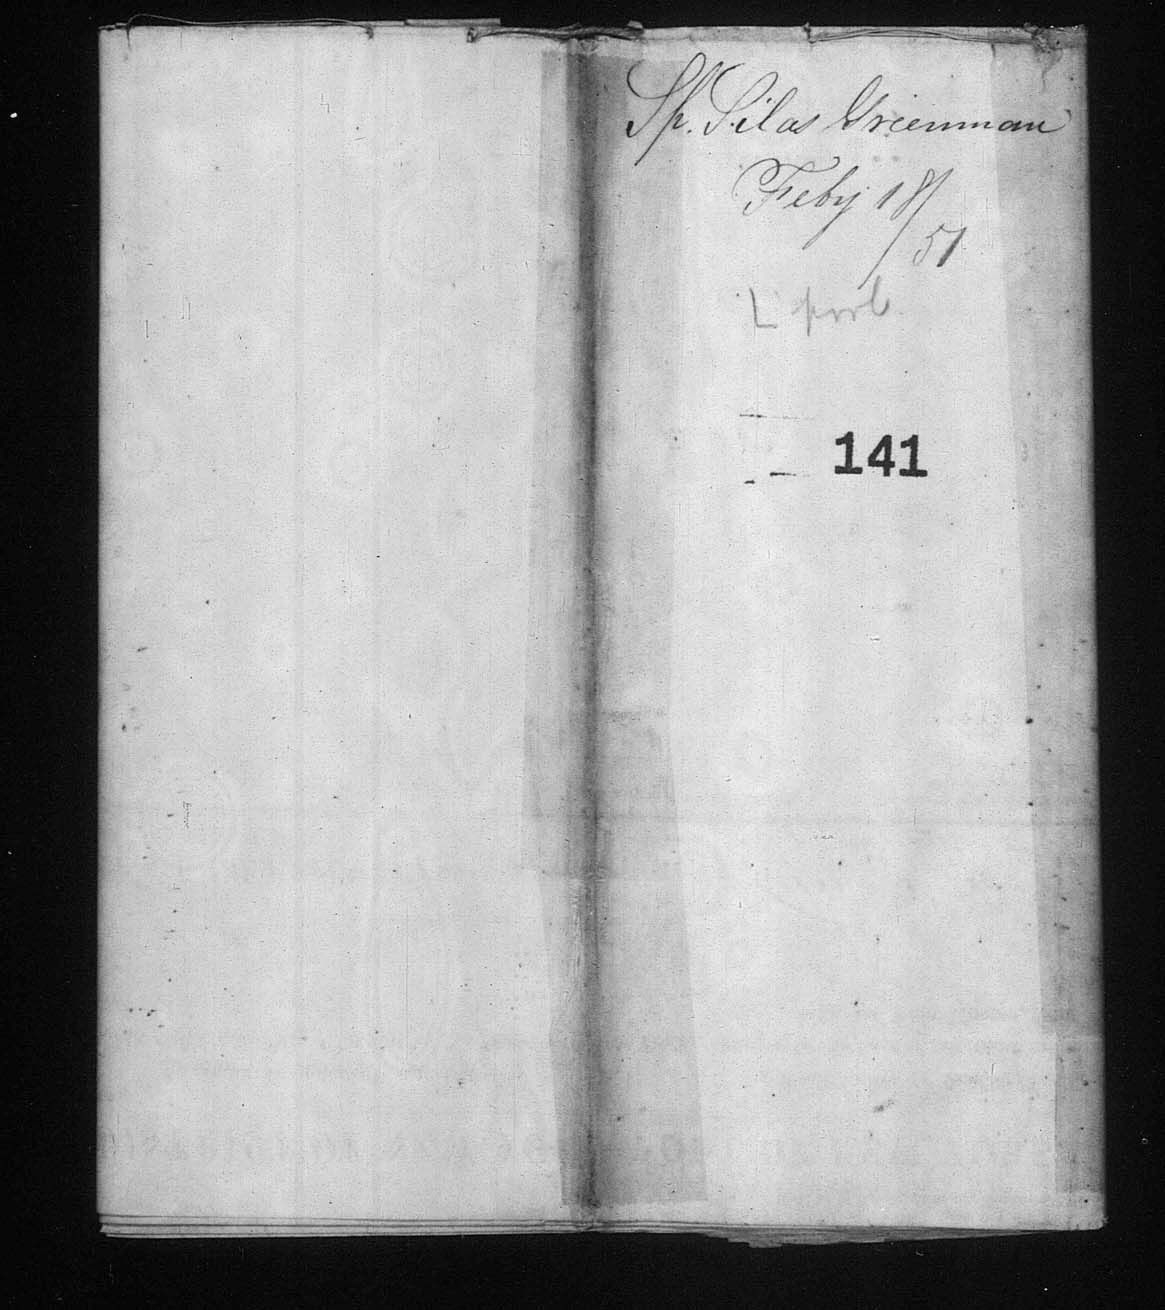 Sh. Silas Greenman
Feby 18/51
L pool
141